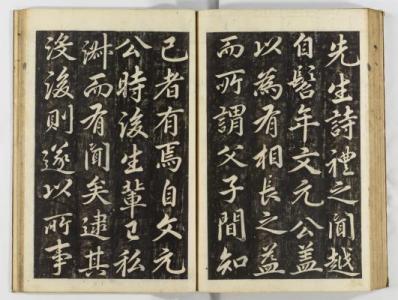 先生詩禮之聞越
自髫年文元公盖
以為有相長之益
而所謂父子間知
己者有焉自文元
公時後生輩已私
淑而有聞矣逮其
没後則遂以所事